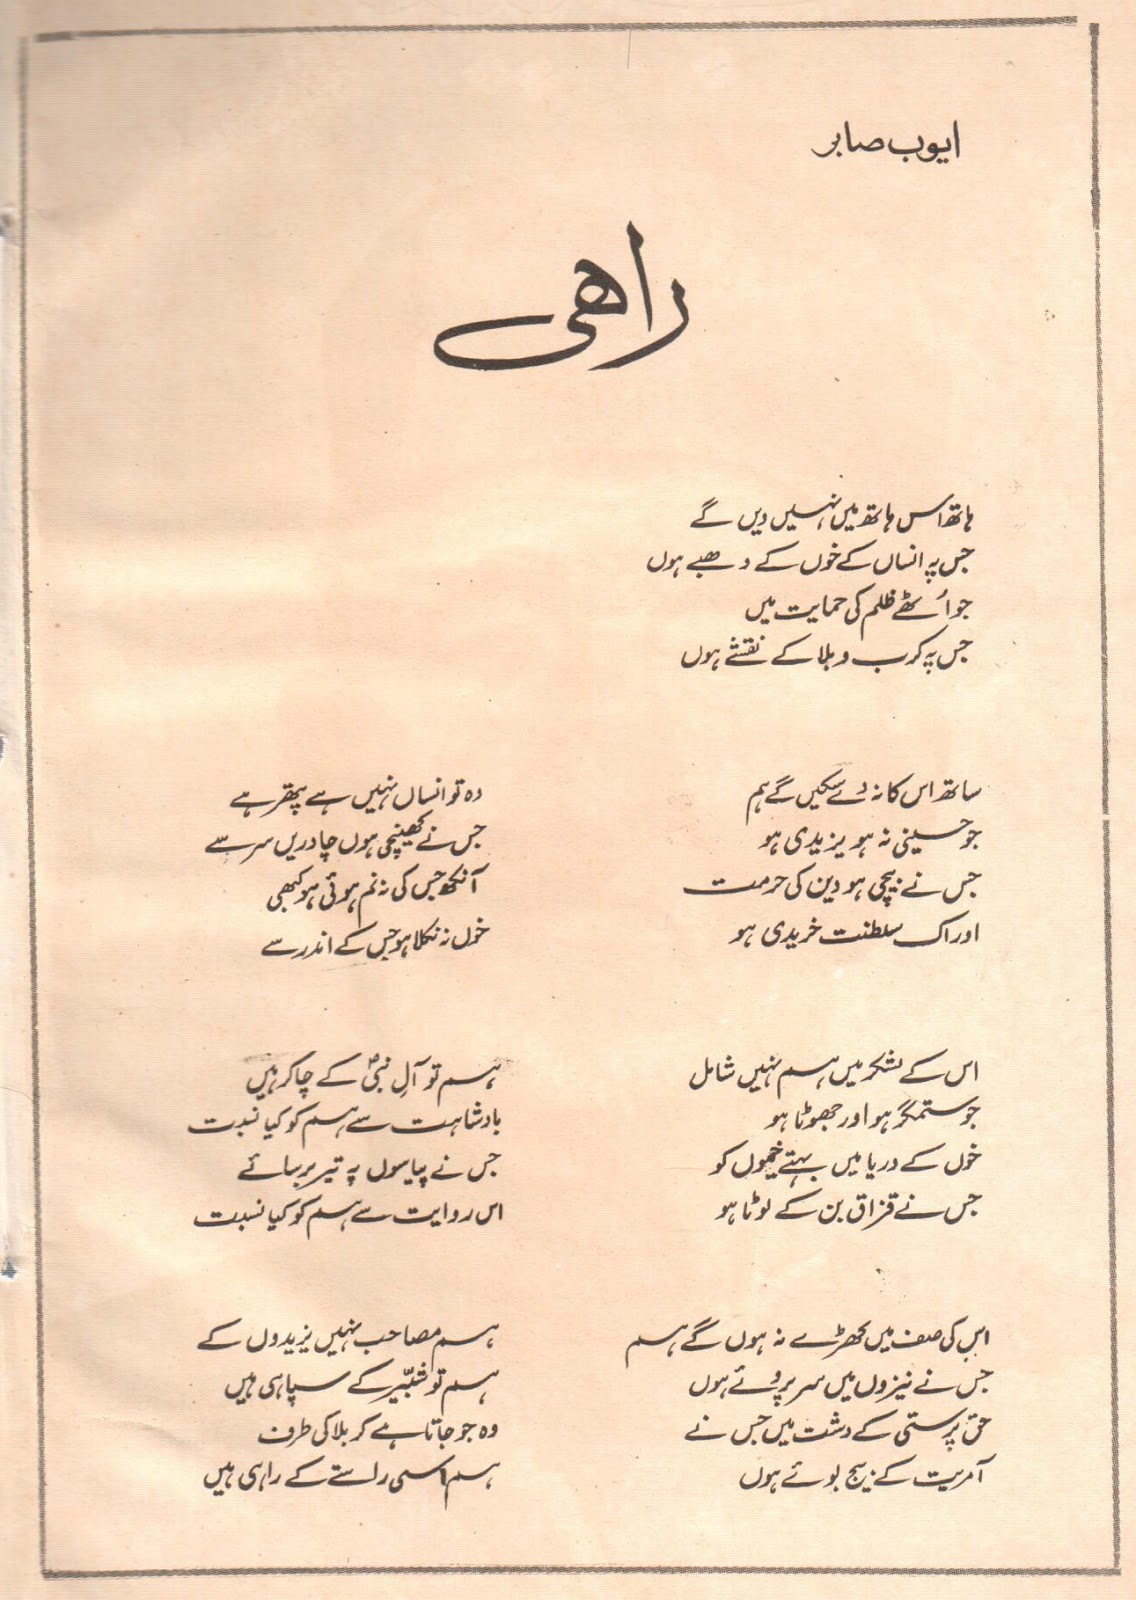 ایوب صابر
راھی
ہاتھ اس ہاتھ میں نہیں دیں گے
جس پہ انساں کے خوں کے دھبے ہوں
جو اُٹھے ظلم کی حمایت میں
جس پہ کرب و بلا کے نقشے ہوں
ساتھ اس کا نہ دے سکیں گے ہم
جو حسینی نہ ہو یزیدی ہو
جس نے بیچی ہو دین کی حرمت
اور اک سلطنت خریدی ہو
اس کے لشکر میں ہم نہیں شامل
جو ستمگر ہو اور جھوٹا ہو
خوں کے دریا میں بہتے خیموں کو
جس نے قزاق بن کے لوٹا ہو
اس کی صف میں کھڑے نہ ہوں گے ہم
جس نے نیزوں میں سر پروئے ہوں
حق پرستی کے دشت میں جس نے
آمریت کے بیج بوئے ہوں
وہ تو انساں نہیں ہے پتھر ہے
جس نے کھینچی ہوں چادریں سر سے
آنکھ جس کی نہ نم ہوئی ہو کبھی
خوں نہ نکلا ہو جس کے اندر سے
ہم تو آلِ نبیؐ کے چاکر ہیں
بادشاہت سے ہم کو کیا نسبت
جس نے پیاسوں پہ تیر برسائے
اس روایت سے ہم کو کیا نسبت
ہم مصاحب نہیں یزیدوں کے
ہم تو شبّیر کے سپاہی ہیں
وہ جو جاتا ہے کربلا کی طرف
ہم اسی راستے کے راہی ہیں